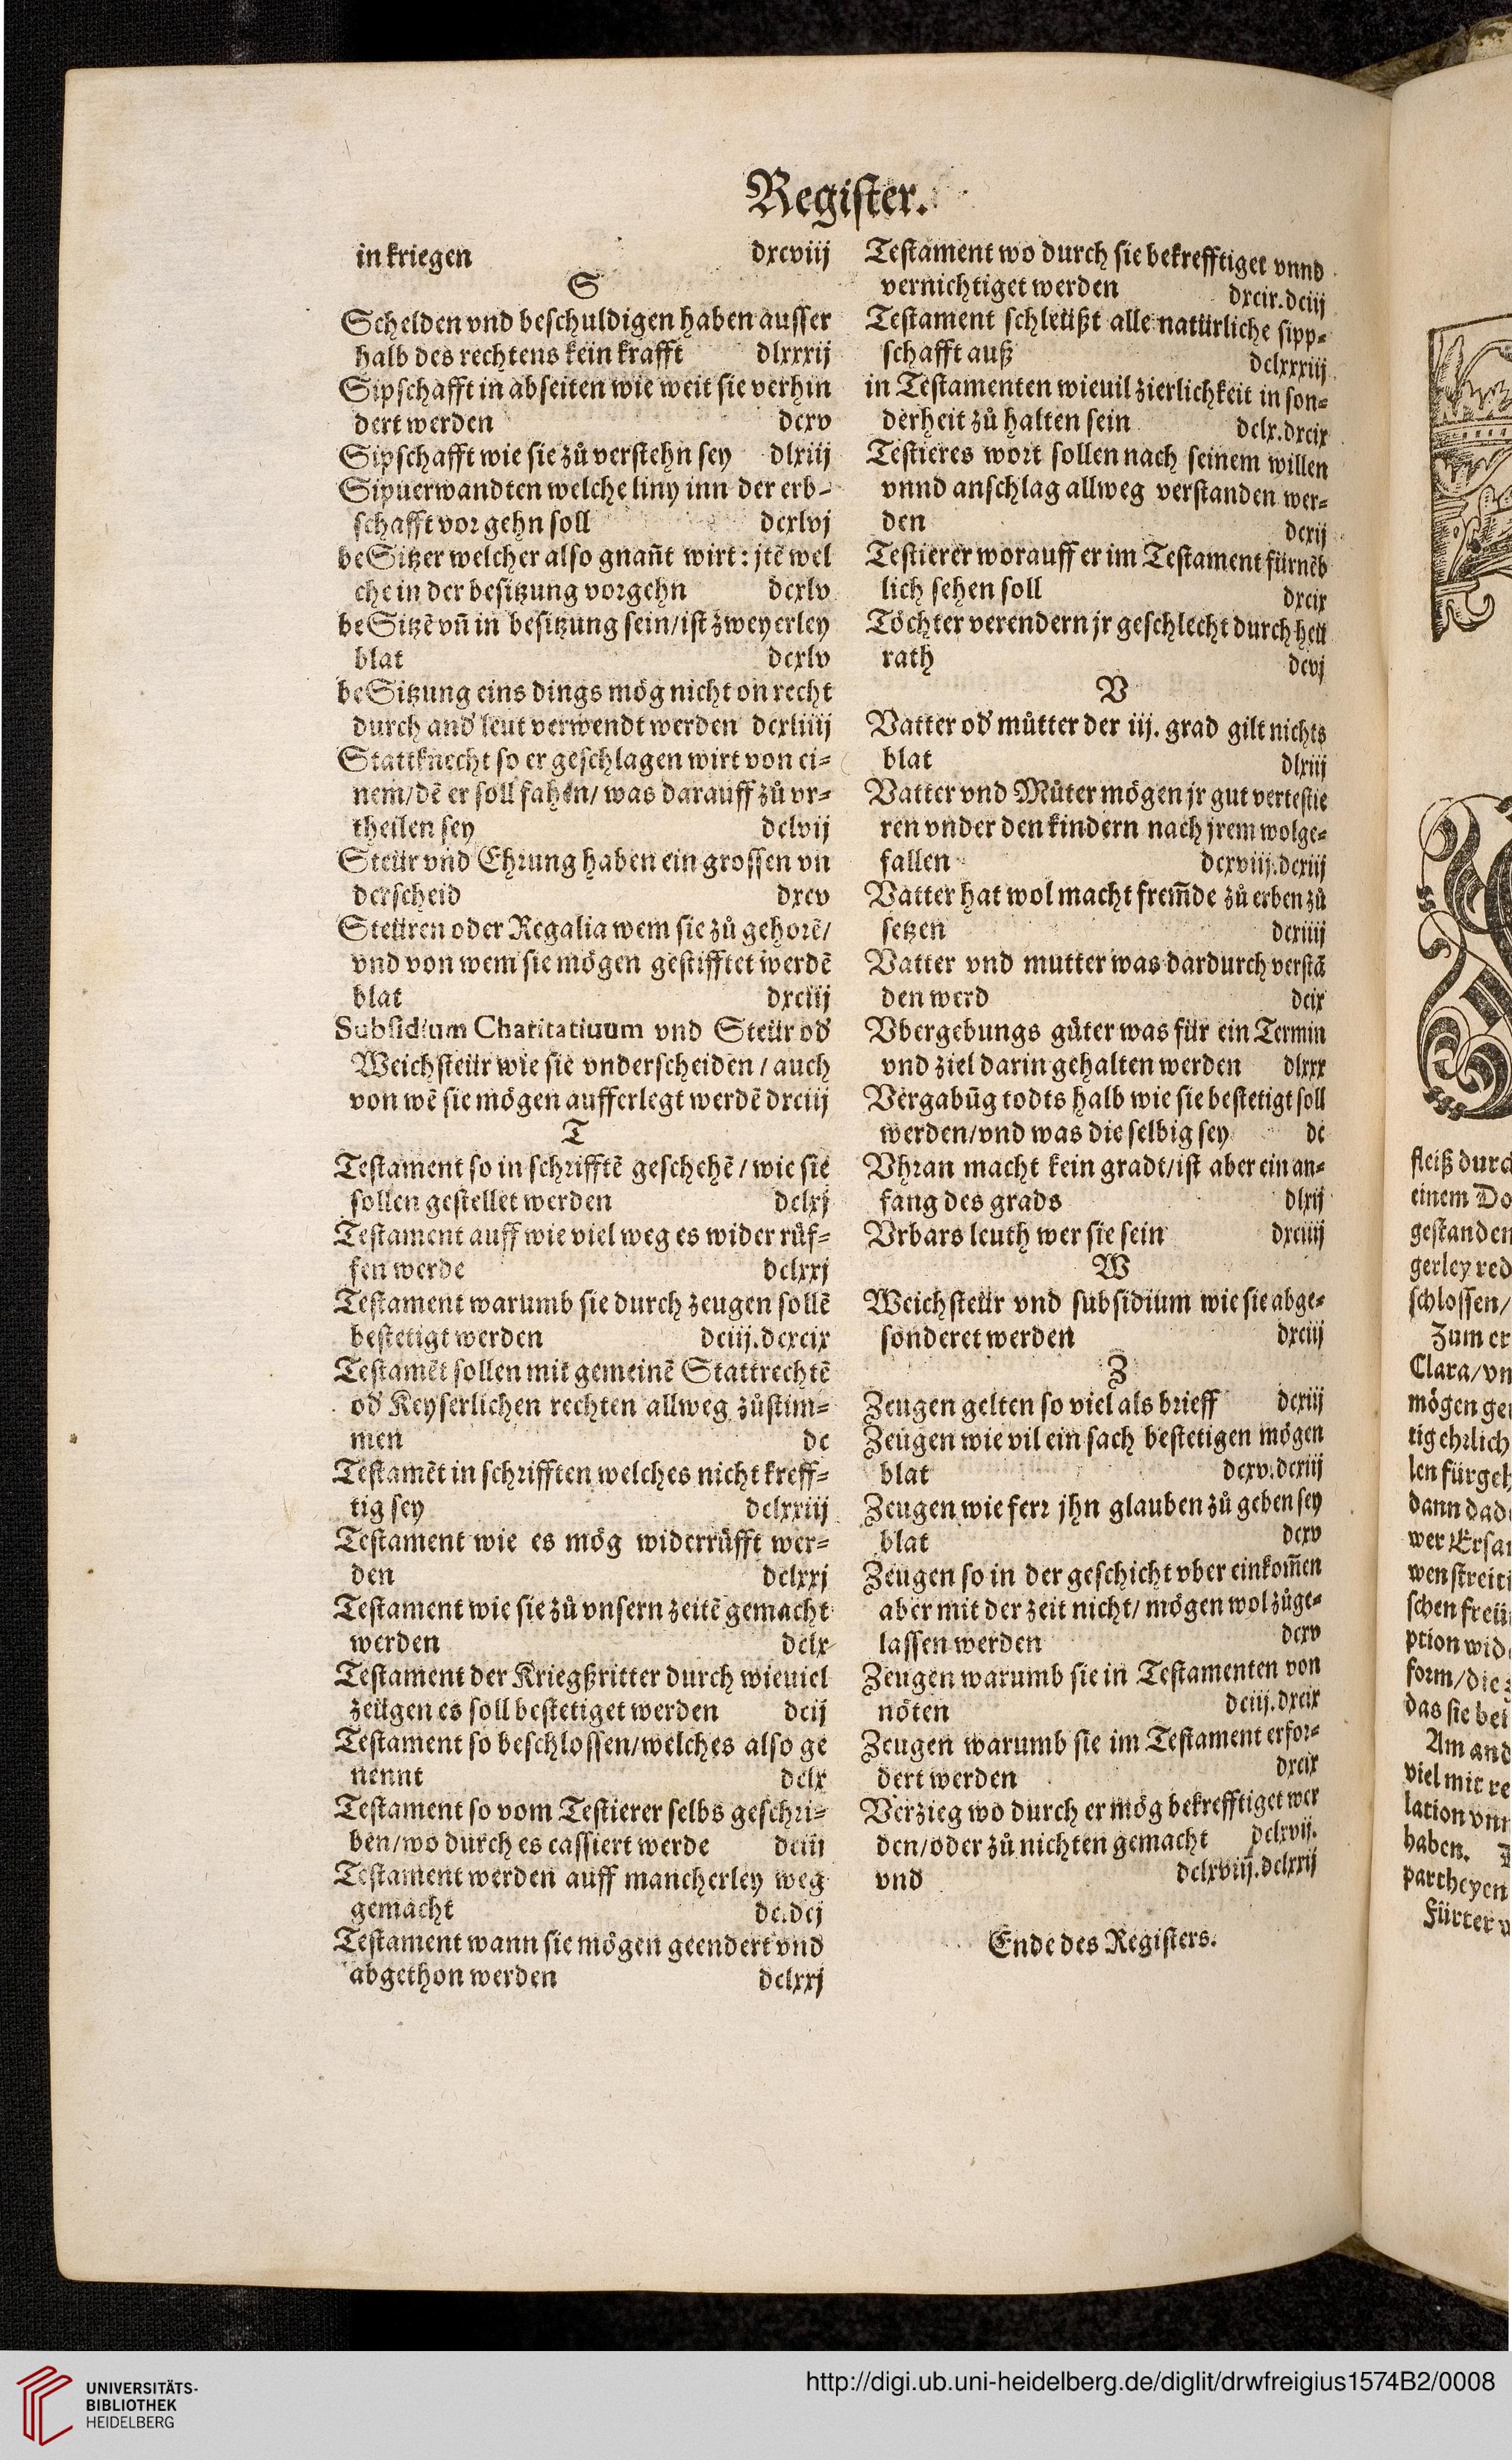 Register.
in kriegen dxcviij
S
Schelden vnd beschuldigen haben ausser
halb des rechtens kein krafft dlxxxij
Sipschafft in abseiten wie weit sie verhin
dert werden dcxv
Sipschafft wie sie zů verstehn sey dlxiij
Sipuerwandten welche liny inn der erb-
schafft vor gehn soll dcxlvj
beSitzer welcher also gnañt wirt: jtẽ wel
che in der besitzung vorgehn dcxlv
beSitzẽ vñ in besitzung sein/ ist zweyerley
blat dcxlv
beSitzung eins dings mög nicht on recht
durch and' leut verwendt werden dcxliiij
Stattknecht so er geschlagen wirt von ei-
nem/ dẽ er soll fahen/ was darauff zů vr-
theilen sey dclvij
Steür vnd Ehrung haben ein grossen vn
derscheid dxcv
Steüren oder Regalia wem sie zů gehorẽ/
vnd von wem sie mögen gestifftet werdẽ
blat dxciij
Subsidium Charitatiuum vnd Steür od'
Weichsteür wie sie vnderscheiden / auch
von wẽ sie mögen aufferlegt werdẽ dxciij
T
Testament so in schrifftẽ geschehẽ / wie sie
sollen gestellet werden dclxj
Testament auff wie viel weg es wider růf-
fen werde dclxxj
Testament warumb sie durch zeugen sollẽ
bestetigt werden dciij.dcxcix
Testamẽt sollen mit gemeinẽ Stattrechtẽ
od' Keyserlichen rechten allweg zůstim-
men dc
Testamẽt in schrifften welches nicht kreff-
tig sey dclxxiij
Testament wie es mög widerrůfft wer-
den dclxxj
Testament wie sie zů vnsern zeitẽ gemacht
werden dclx
Testament der Kriegßritter durch wieuiel
zeügen es soll bestetiget werden dcij
Testament so beschlossen/ welches also ge
nennt dclx
Testament so vom Testierer selbs geschri-
ben/ wo durch es cassiert werde dciij
Testament werden auff mancherley weg
gemacht dc.dcj
Testament wann sie mögen geendert vnd
abgethon werden dclxxj
Testament wo durch sie bekrefftiget vnnd
vernichtiget werden dxcix.dciij
Testament schleüßt alle natürliche sipp-
schafft auß dclxxxiij
in Testamenten wieuil zierlichkeit in son-
derheit zů halten sein dclx.dxcix
Testieres wort sollen nach seinem willen
vnnd anschlag allweg verstanden wer-
den dcxij
Testierer worauff er im Testament fürnẽb
lich sehen soll dxcix
Töchter verendern jr geschlecht durch heü
rath dcvj
V
Vatter od' můtter der iij. grad gilt nichts
blat dlxiij
Vatter vnd Můter mögen jr gut vertestie
ren vnder den kindern nach jrem wolge-
fallen dcxviij.dcxiij
Vatter hat wol macht frem̃de zů erben zů
setzen dcxiiij
Vatter vnd mutter was dardurch verstã
den werd dcix
Vbergebungs gůter was für ein Termin
vnd ziel darin gehalten werden dlxxx
Vergabũg todts halb wie sie bestetigt soll
werden/ vnd was die selbig sey dc
Vhran macht kein gradt/ ist aber ein an-
fang des grads dlxij
Vrbars leuth wer sie sein dxciiij
W
Weichsteür vnd subsidium wie sie abge-
sonderet werden dxciij
Z
Zeugen gelten so viel als brieff dcxiij
Zeügen wie vil ein sach bestetigen mögen
blat dcxv.dcxiij
Zeugen wie ferr jhn glauben zů geben sey
blat dcxv
Zeügen so in der geschicht vber einkom̃en
aber mit der zeit nicht/ mögen wol zůge-
lassen werden dcxv
Zeugen warumb sie in Testamenten von
nöten dciij.dxcix
Zeugen warumb sie im Testament erfor-
dert werden dxcix
Verzieg wo durch er mög bekrefftiget wer
den/ oder zů nichten gemacht dclxvij.
vnd dclxviij.dclxxij
Ende des Registers.
fleiß durc
einem Do
gestanden
gerley red
schlossen/
Zum er
Clara/ vn
mögen ge
tig ehrlich
len fürgeh
dann dad
wer Ersa
wen streiti
schen freü
ption wid
form/ die z
das sie bei
Am and
viel mit re
lation vnn
haben.
partheyen
Fürter v
UNIVERSITÄTS-
BIBLIOTHEK
HEIDELBERG
http://digi.ub.uni-heidelberg.de/diglit/drwfreigius1574B2/0008